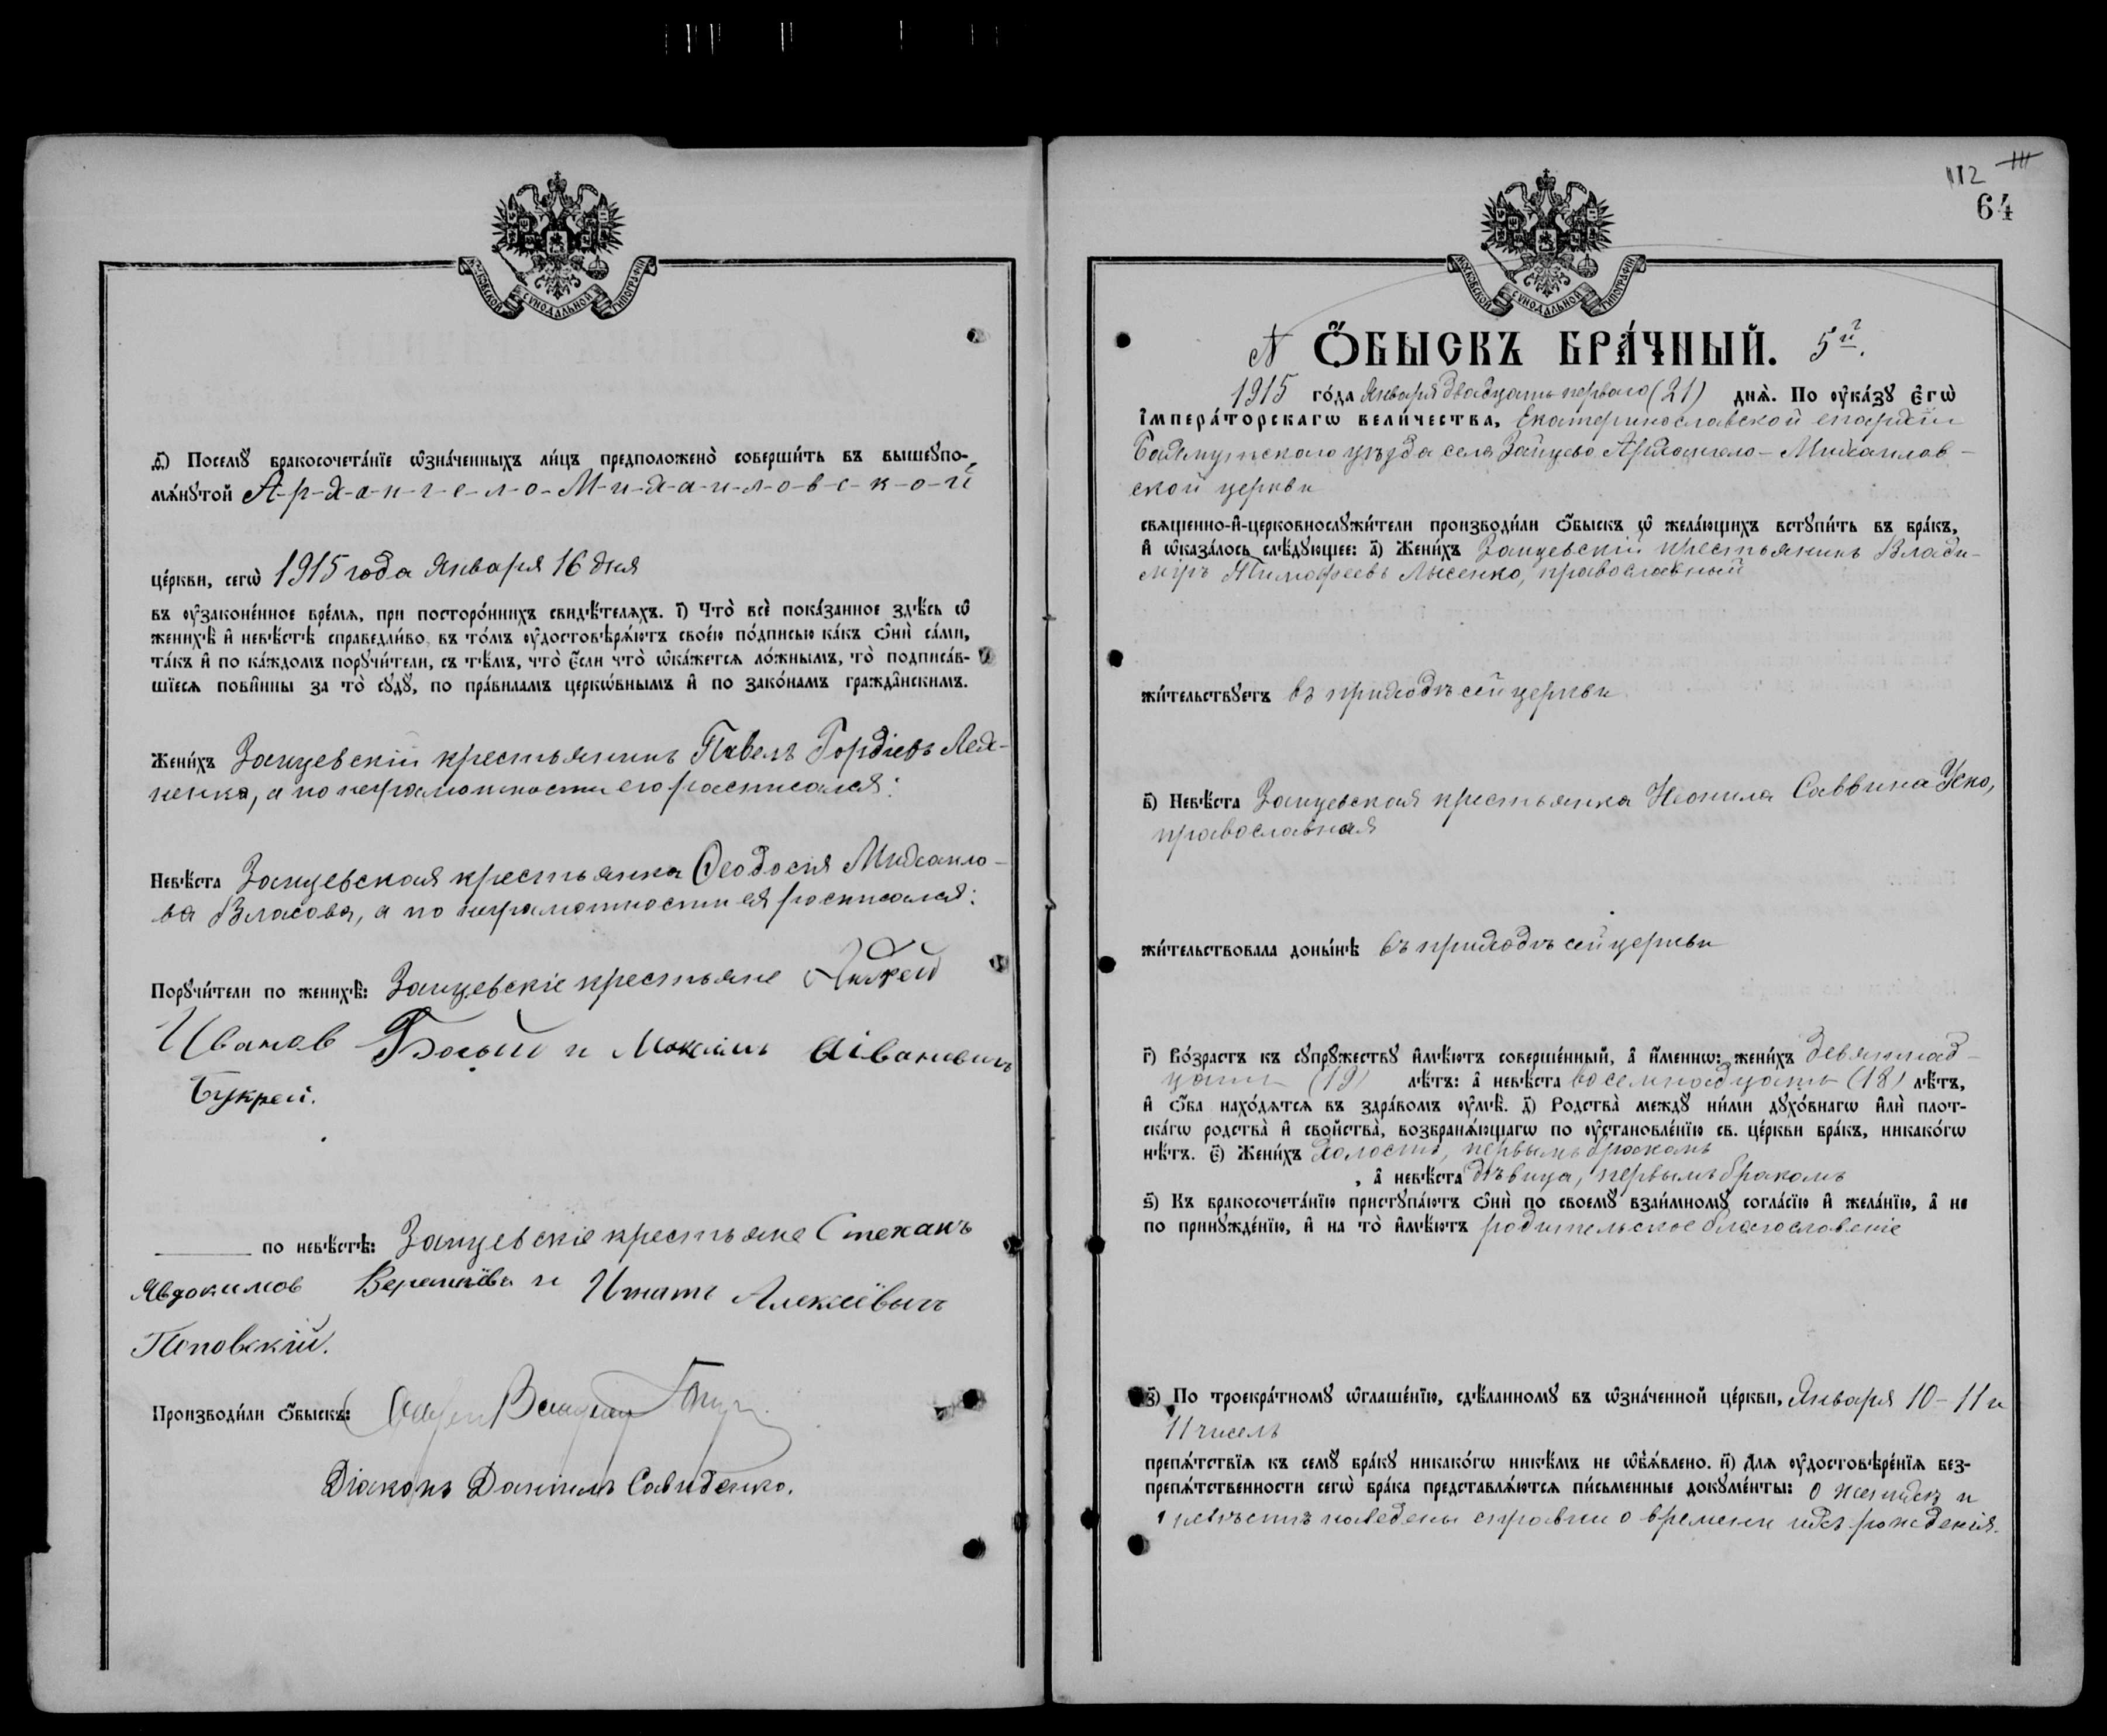 МОСКОВСКОЙ СѴНОДАЛЬНОЙ ТИПОГРАФІИ
ѳ҃) Посемꙋ бракосочета́нїе ѡ҆зна́ченныхъ ли́цъ предположено̀ соверши́ть въ вышеꙋпо-
мѧ́нꙋтой А-р-х-а-н-г-е-л-о-М-и-х-а-и-л-о-в-с-к-о-й
це́ркви, сегѡ̀ 1915 года Января 16 дня
въ ᲂу҆законе́нное вре́мѧ, при посторо́ннихъ свидѣ́телѧхъ. і҃) Что̀ всѐ пока́занное здѣ́сь ѡ҆
женихѣ̀ и҆ невѣ́стѣ справедли́во, въ то́мъ ᲂу҆достовѣрѧ́ютъ свое́ю по́дписью ка́къ ѻ҆нѝ са́ми,
та́къ и҆ по ка́ждомъ порꙋчи́тели, съ тѣ́мъ, что̀ є҆́сли что̀ ѡ҆ка́жетсѧ ло́жнымъ, то̀ подписа́в-
шїесѧ пови́нны за то̀ сꙋдꙋ̀, по пра́виламъ церкѡ́внымъ и҆ по зако́намъ гражда́нскимъ.
Жени́хъ Зайцевскій крестьянинъ Павелъ Гордіевъ Лях-
ненко, а по неграмотности его росписался:
Невѣ́ста Зайцевская крестьянка Ѳеодосія Михайло-
ва Власова, а по неграмотности ея росписался:
Порꙋчи́тели по женихѣ̀: Зайцевскіе крестьяне
Иванов Босый и Максимъ Івановичъ
Букрей.
по невѣ́стѣ: Зайцевскіе крестьяне Степанъ
Явдокимов и Игнатъ Алексіевичъ
Поповскій.
Производи́ли ѻ҆́быскъ:
Діаконъ Даніилъ Савиденко.
112 111
64
МОСКОВСКОЙ СѴНОДАЛЬНОЙ ТИПОГРАФІИ
№ Ѻ҆́БЫСКЪ БРА́ЧНЫЙ. 5й.
1915 го́да Января двадцать перваго (21) днѧ̀. По ᲂу҆ка́зꙋ Є҆гѡ̀
І҆мпера́торскагѡ вели́чества, Екатеринославской епархіи
Бахмутскаго уѣзда села Зайцево Архангело-Михаилов-
ской церкви
свѧще́нно-и҆-церковнослꙋжи́тели производи́ли ѻ҆́быскъ ѡ҆ жела́ющихъ встꙋпи́ть въ бра́къ,
и҆ ѡ҆каза́лось слѣ́дꙋющее: а҃) Жени́хъ Зайцевскій крестьянинъ Влади-
міръ Тимофеевъ Лысенко, православный
жи́тельствꙋетъ въ приходѣ сей церкви
в҃) Невѣ́ста Зайцевская крестьянка Неонила Саввина Уско,
православная
жи́тельствовала доны́нѣ въ приходѣ сей церкви
г҃) Во́зрастъ къ сꙋпрꙋ́жествꙋ и҆мѣ́ютъ соверше́нный, а҆ и҆́меннѡ: жени́хъ девятнад-
цати (19) лѣ́тъ: а҆ невѣ́ста восемнадцати (18) лѣ́тъ,
и҆ ѻ҆́ба нахо́дѧтсѧ въ здра́вомъ ᲂу҆мѣ̀. д҃) Родства̀ междꙋ̀ ни́ми дꙋхо́внагѡ и҆лѝ плот-
ска́гѡ родства̀ и҆ сво́йства, возбранѧ́ющагѡ по ᲂу҆становле́нїю св. це́ркви бра́къ, никако́гѡ
нѣ́тъ. є҃) Жени́хъ холостъ, первымъ бракомъ
, а҆ невѣ́ста дѣвица, первымъ бракомъ
ѕ҃) Къ бракосочета́нїю пристꙋпа́ютъ ѻ҆нѝ по своемꙋ̀ взаи́мномꙋ согла́сїю и҆ жела́нїю, а҆ не
по принꙋжде́нїю, и҆ на то̀ и҆мѣ́ютъ родительское благословеніе
з҃) По троекра́тномꙋ ѡ҆глаше́нїю, сдѣ́ланномꙋ въ ѡ҆зна́ченной це́ркви, Января 10-11 и
11 чиселъ
препѧ́тствїѧ къ семꙋ̀ бра́кꙋ никако́гѡ никѣ́мъ не ѡ҆б̾ѧ́влено. и҃) Длѧ ᲂу҆достовѣре́нїѧ без-
препѧ́тственности сегѡ̀ бра́ка представлѧ́ютсѧ пи́сьменные докꙋме́нты: о женихѣ и
невѣстѣ наведены справки о времени ихъ рожденія.